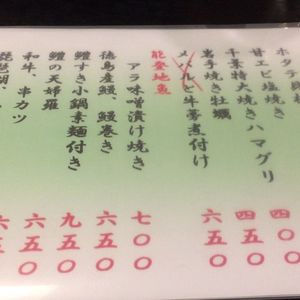 ホタテ
甘エビ塩焼き 四〇〇
千葉特大焼きハマグリ 四五〇
岩手焼き牡蠣 六五〇
メバルと牛蒡煮付け
能登地魚
アラ味噌漬け焼き 七〇〇
徳島産鰻、鰻巻き 六五〇
鱧すき小鍋素麺付き 九五〇
鱧の天婦羅 六五〇
和牛、串カツ 六五〇
琵琶湖、